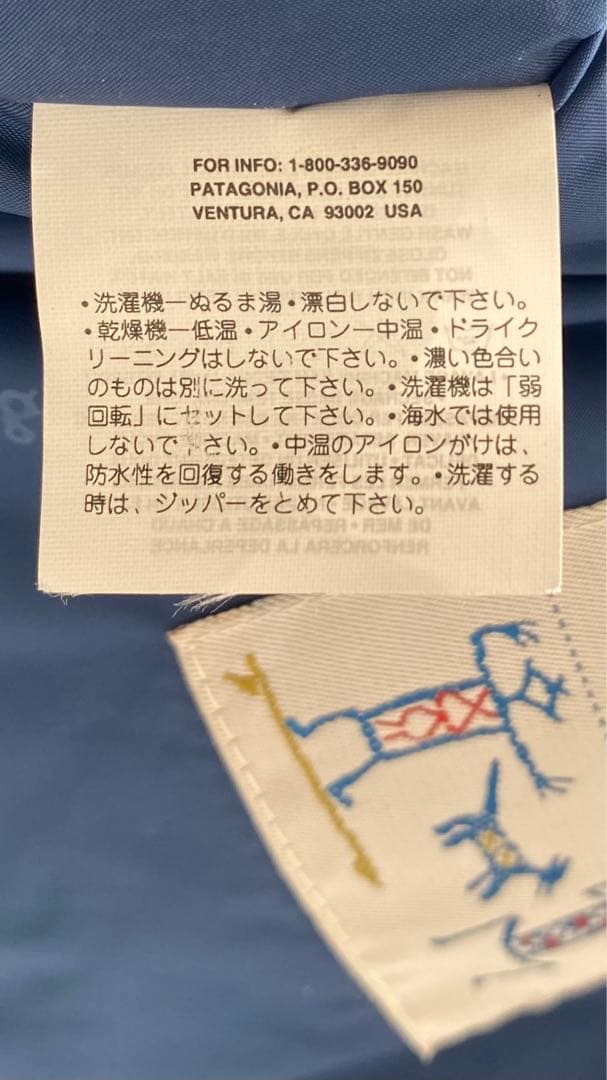 FOR INFO: 1-800-336-9090
PATAGONIA, P.O. BOX 150
VENTURA, CA 93002 USA
・洗濯機—ぬるま湯・漂白しないで下さい。
・乾燥機—低温・アイロン—中温・ドライク
リーニングはしないで下さい。・濃い色合い
のものは別に洗って下さい。・洗濯機は「弱
回転」にセットして下さい。・海水では使用
しないで下さい。・中温のアイロンがけは、
防水性を回復する働きをします。・洗濯する
時は、ジッパーをとめて下さい。
DE MER • REPASSAGE A CHAUD
RENFORCERA LA DEPERLANCE